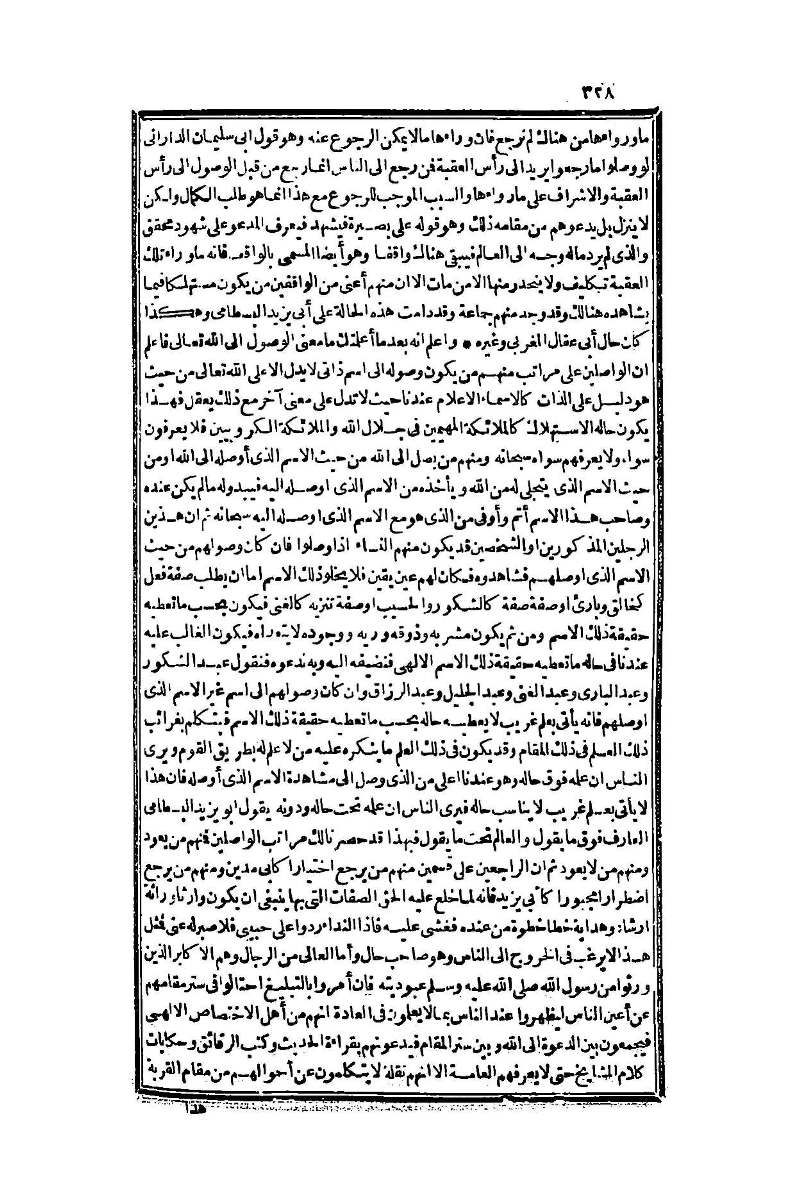 ٣٢٨
ماوراءها من هنالك لم نرجع فان وراءها مالا يمكن الرجوع عنه وهو قول ابى سليمان الدارانى
لو وصلوا ما رجعوا يريد الى رأس العقبة فمن رجع الى الناس انما رجع من قبل الوصول الى رأس
العقبة والاشراف على ما وراءها والسبب الموجب للرجوع مع هذا انما هو طلب الكمال ولكن
لا ينزل بل يدعوهم من مقامه ذلك وهو قوله على بصيرة فيشهد فيعرف المدعو على شهود محقق
والذى لم يرد ماله وجه الى العالم فيبقى هنالك واقفا وهو أيضا المسمى بالواقف فانه ما وراء تلك
العقبة تكليف ولا ينحدر منها الا من مات الا ان منهم أعنى من الواقفين من يكون مستهلكا فيما
يشاهده هنالك وقد وجد منهم جماعة وقد دامت هذه الحالة على أبى يزيد البسطامى وهكذا
كان حال أبى عقال المغربى وغيره * واعلم انه بعد ما أعلمتك ما معنى الوصول الى الله تعالى فاعلم
ان الواصلين على مراتب منهم من يكون وصوله الى اسم ذاتى لا يدل الا على الله تعالى من حيث
هو دليل على الذات كالاسماء الاعلام عندنا حيث لا تدل على معنى آخر مع ذلك يعقل فهذا
يكون حاله الاستهلاك كالملائكة المهيمين فى جلال الله والملائكة الكروبيين فلا يعرفون
سواه ولا يعرفهم سواه سبحانه ومنهم من يصل الى الله من حيث الاسم الذى أوصله الى الله أو من
حيث الاسم الذى يتجلى له من الله ويأخذه من الاسم الذى اوصله اليه فيبدو له مالم يكن عنده
وصاحب هذا الاسم أتم وأوفى من الذى هو مع الاسم الذى اوصله اليه سبحانه ثم ان هذين
الرجلين المذكورين او الشخصين قد يكون منهم النساء اذا وصلوا فان كان وصولهم من حيث
الاسم الذى اوصلهم فشاهدوه فكان لهم عين يقين فلا يخلو ذلك الاسم اما ان يطلب صفة فعل
كخالق وبارئ او صفة صفة كالشكور والحسيب او صفة تنزيه كالغنى فيكون بحسب ما تعطيه
حقيقة ذلك الاسم ومن ثم يكون مشربه وذوقه وريه ووجوده لا يتعداه فيكون الغالب عليه
عندنا فى حاله ما تعطيه حقيقة ذلك الاسم الالهى فنضيفه اليه وبه ندعوه فنقول عبد الشكور
وعبد البارى وعبد الغنى وعبد الجليل وعبد الرزاق وان كان وصولهم الى اسم غير الاسم الذى
اوصلهم فانه يأتى بعلم غريب لا يعطيه حاله بحسب ما تعطيه حقيقة ذلك الاسم فيتكلم بغرائب
ذلك العلم فى ذلك المقام وقد يكون فى ذلك العلم ما ينكره عليه من لا علم له بطريق القوم ويرى
الناس ان علمه فوق حاله وهو عندنا اعلى من الذى وصل الى مشاهدة الاسم الذى أوصله فان هذا
لا يأتى بعلم غريب لا يناسب حاله فيرى الناس ان علمه تحت حاله ودونه يقول ابو يزيد البسطامى
العارف فوق ما يقول والعالم تحت ما يقول فبهذا قد حصرنا لك مراتب الواصلين فمنهم من يعود
ومنهم من لا يعود ثم ان الراجعين على قسمين منهم من يرجع اختيارا كابى مدين ومنهم من يرجع
اضطرارا مجبورا كأبى يزيد فانه لما خلع عليه الحق الصفات التى بها ينبغى ان يكون وارثا وراثة
ارشاد وهداية خطا خطوة من عنده فغشى عليه فاذا النداء ردوا على حبيبى فلا صبر له عنى فمثل
هذا لا يرغب فى الخروج الى الناس وهو صاحب حال وأما العالى من الرجال وهم الاكابر الذين
ورثوا من رسول الله صلى الله عليه وسلم عبوديته فان أمروا بالتبليغ احتالوا فى ستر مقامهم
عن أعين الناس ليظهروا عند الناس بما لا يعلمون فى العادة انهم من أهل الاختصاص الالهى
فيجمعون بين الدعوة الى الله وبين ستر المقام فيدعونهم بقراءة الحديث وكتب الرقائق وحكايات
كلام المشايخ حتى لا يعرفهم العامة الا انهم نقلة لا يتكلمون عن أحوالهم من مقام القربة
هذا